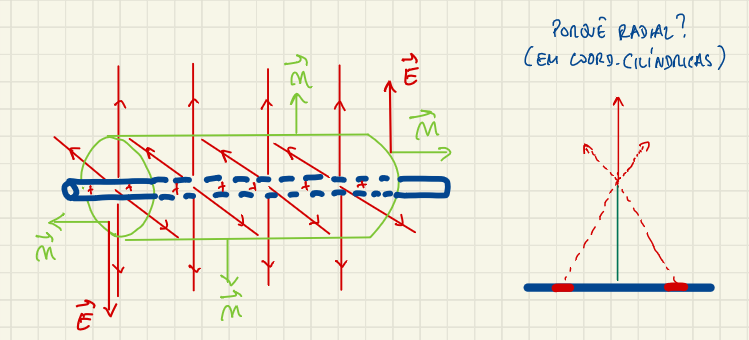 PORQUÊ RADIAL?
(EM COORD. CILÍNDRICAS)
E
n
n
+ + + + + + +
n
n
E